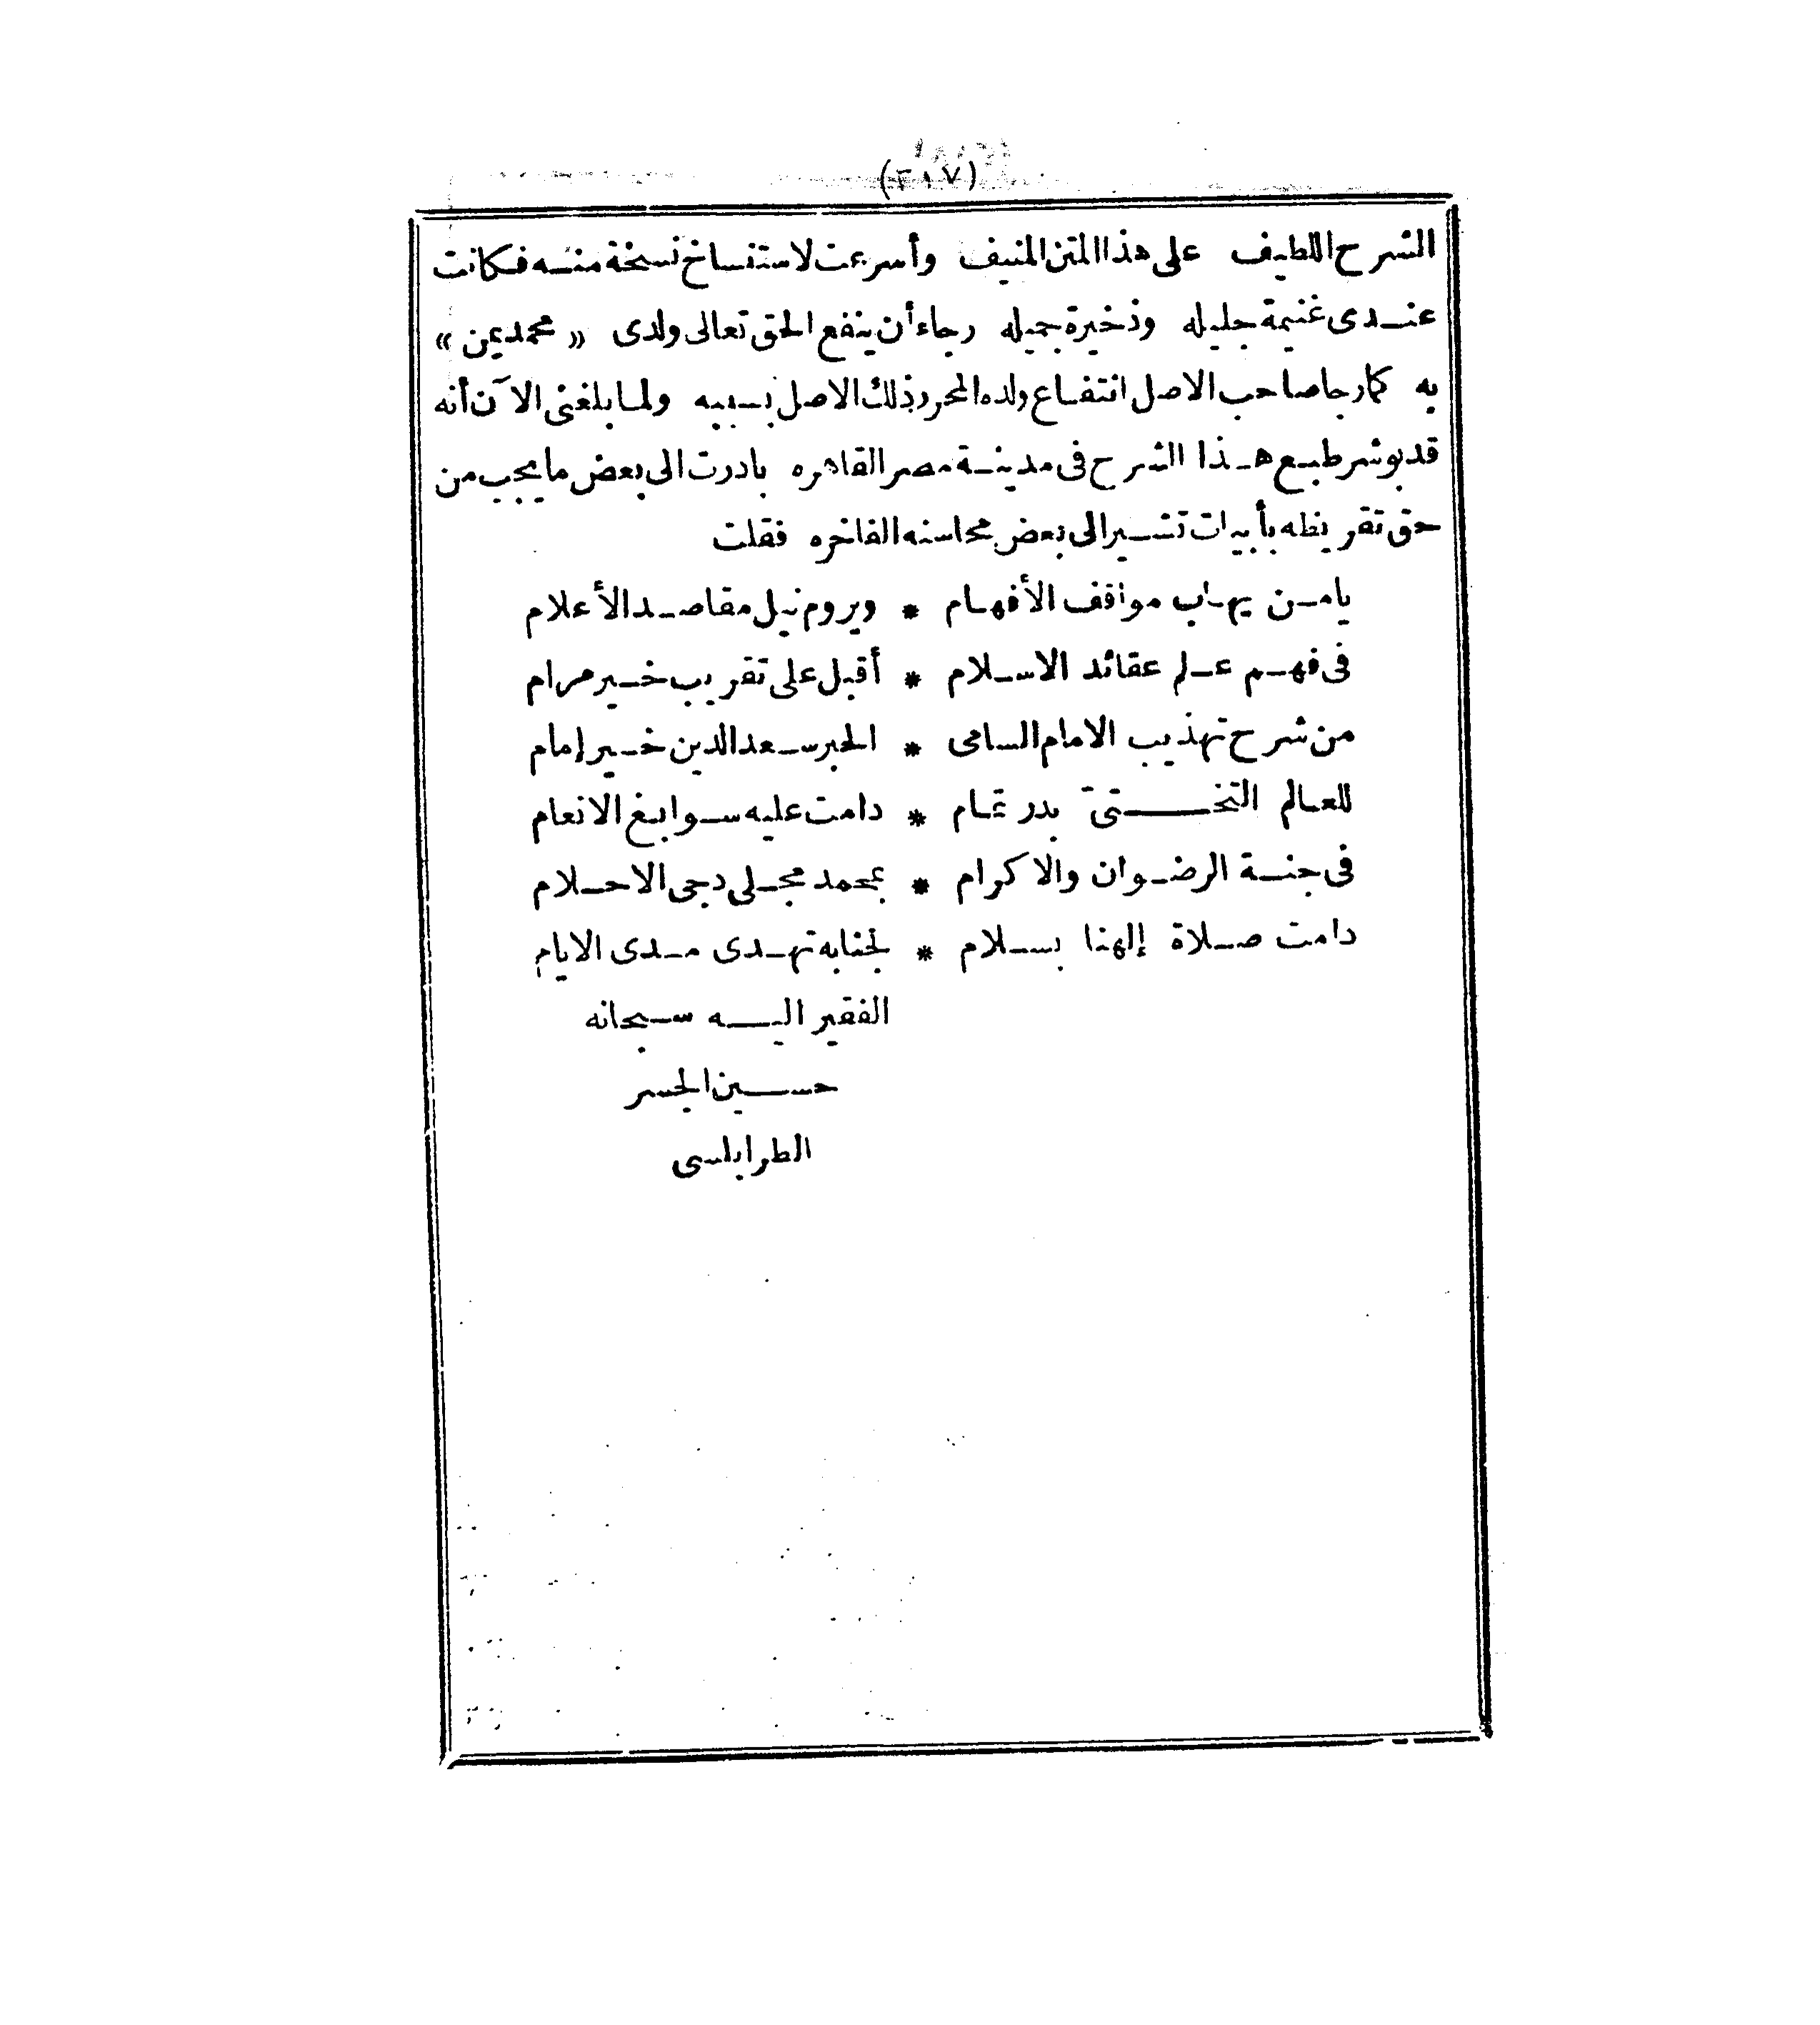 (٣١٧)
الشرح اللطيف على هذا المتن المنيف وأسرعت لاستنساخ نسخة منه فكانت
عندى غنيمة جليله وذخيرة جميله رجاء أن ينفع الحق تعالى ولدى « محمديمن »
به كمارجا صاحب الاصل انتفاع ولده المحرر ذلك الاصل بسببه ولما بلغنى الآن أنه
قد بوشر طبع هذا الشرح فى مدينة مصر القاهره بادرت الى بعض ما يجب من
حق تقريظه بأبيات تشير الى بعض محاسنه الفاخره فقلت
يا من يهاب مواقف الأفهام * ويروم نيل مقاصد الأعلام
فى فهم علم عقائد الاسلام * أقبل على تقريب خير مرام
من شرح تهذيب الامام السامى * الحبر سعد الدين خير إمام
للعالم التختىّ بدر تمام * دامت عليه سوابغ الانعام
فى جنة الرضوان والاكرام * بمحمد مجلى دجى الاحلام
دامت صلاة إلهنا بسلام * لجنابه تهدى مدى الايام
الفقير اليه سبحانه
حسين الجسر
الطرابلسى